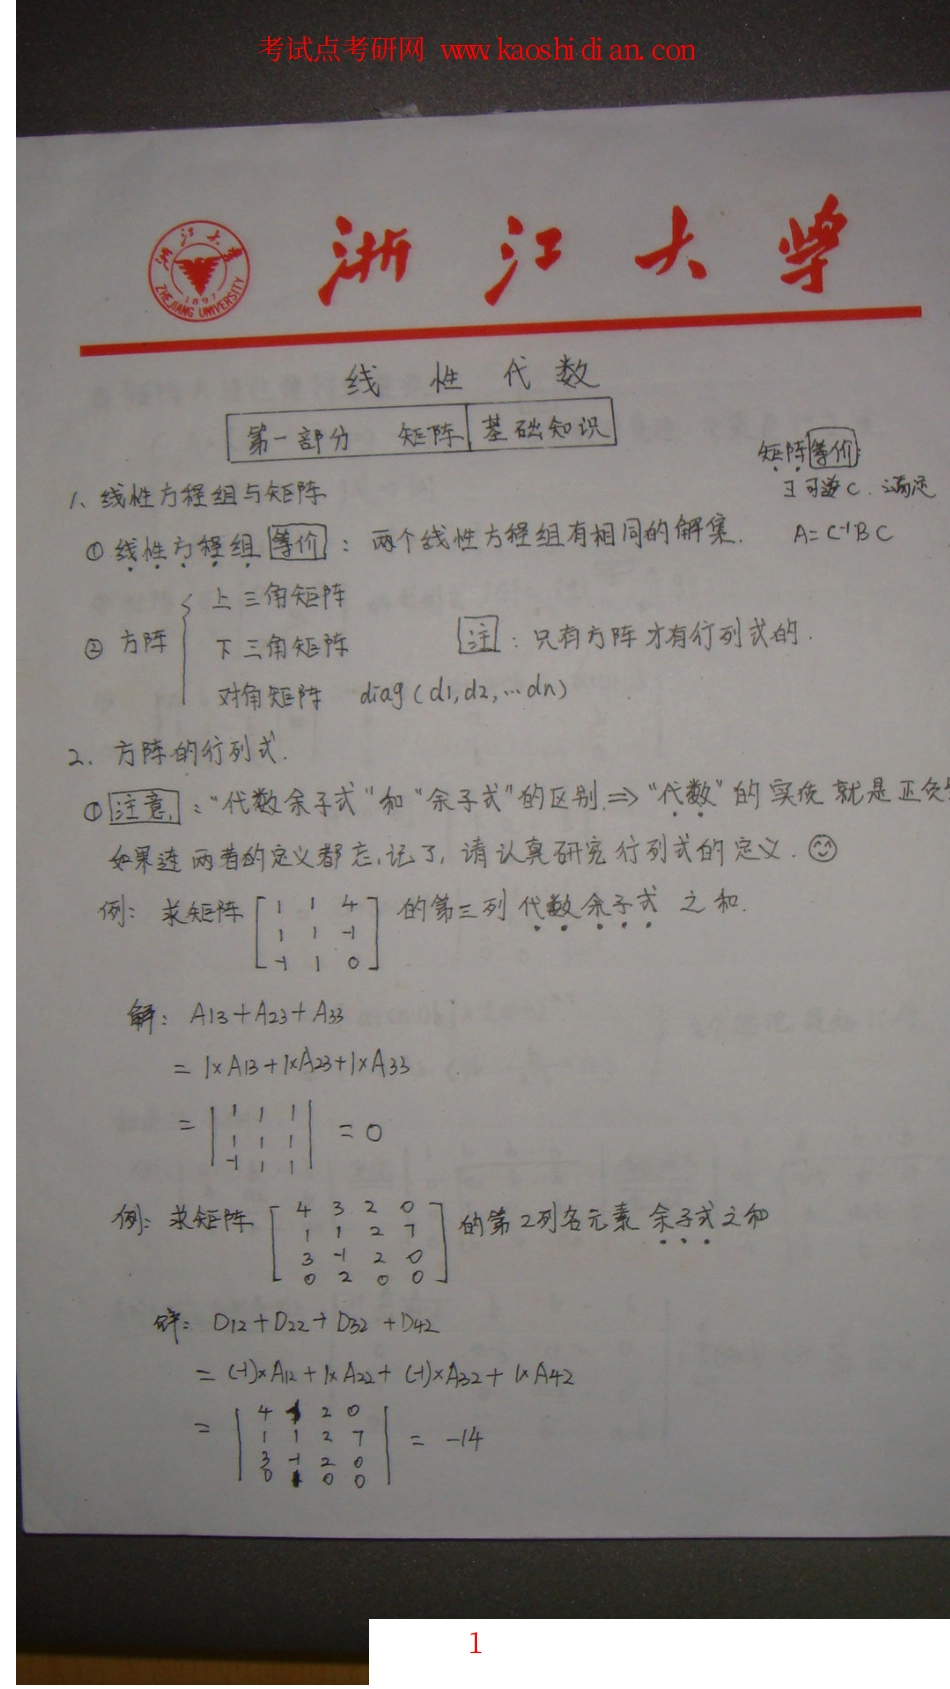 考试点考研网 www.kaoshidian.com
浙江大学
浙江大学
1897
ZHEJIANG UNIVERSITY
线性代数
第一部分 矩阵 基础知识
矩阵等价:
∃可逆C.满足
A=C⁻¹BC
1、线性方程组与矩阵
① 线性方程组等价：两个线性方程组有相同的解集.
② 方阵
上三角矩阵
下三角矩阵
对角矩阵 diag(d1,d2,…dn)
注：只有方阵才有行列式的.
2、方阵的行列式.
① 注意：“代数余子式”和“余子式”的区别.⇒“代数”的实质就是正负
如果连两者的定义都忘记了,请认真研究行列式的定义.
例：求矩阵 的第三列代数余子式之和.
1 1 4
1 1 -1
-1 1 0
解：A13+A23+A33
=1×A13+1×A23+1×A33
= =0
1 1 1
1 1 1
-1 1 1
例：求矩阵 的第2列各元素余子式之和
4 3 2 0
1 1 2 7
3 -1 2 0
0 2 0 0
解：D12+D22+D32+D42
=(-1)×A12+1×A22+(-1)×A32+1×A42
= = -14
4 -1 2 0
1 1 2 7
3 -1 2 0
0 1 0 0
1